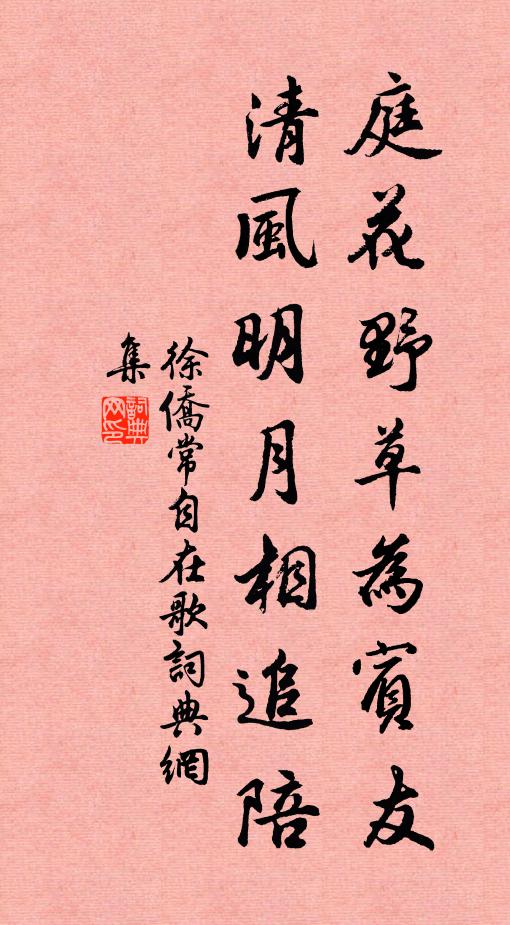 庭花野草為賓友
清風明月相追陪
徐僑常自在歌詞典網
集
詞典網印